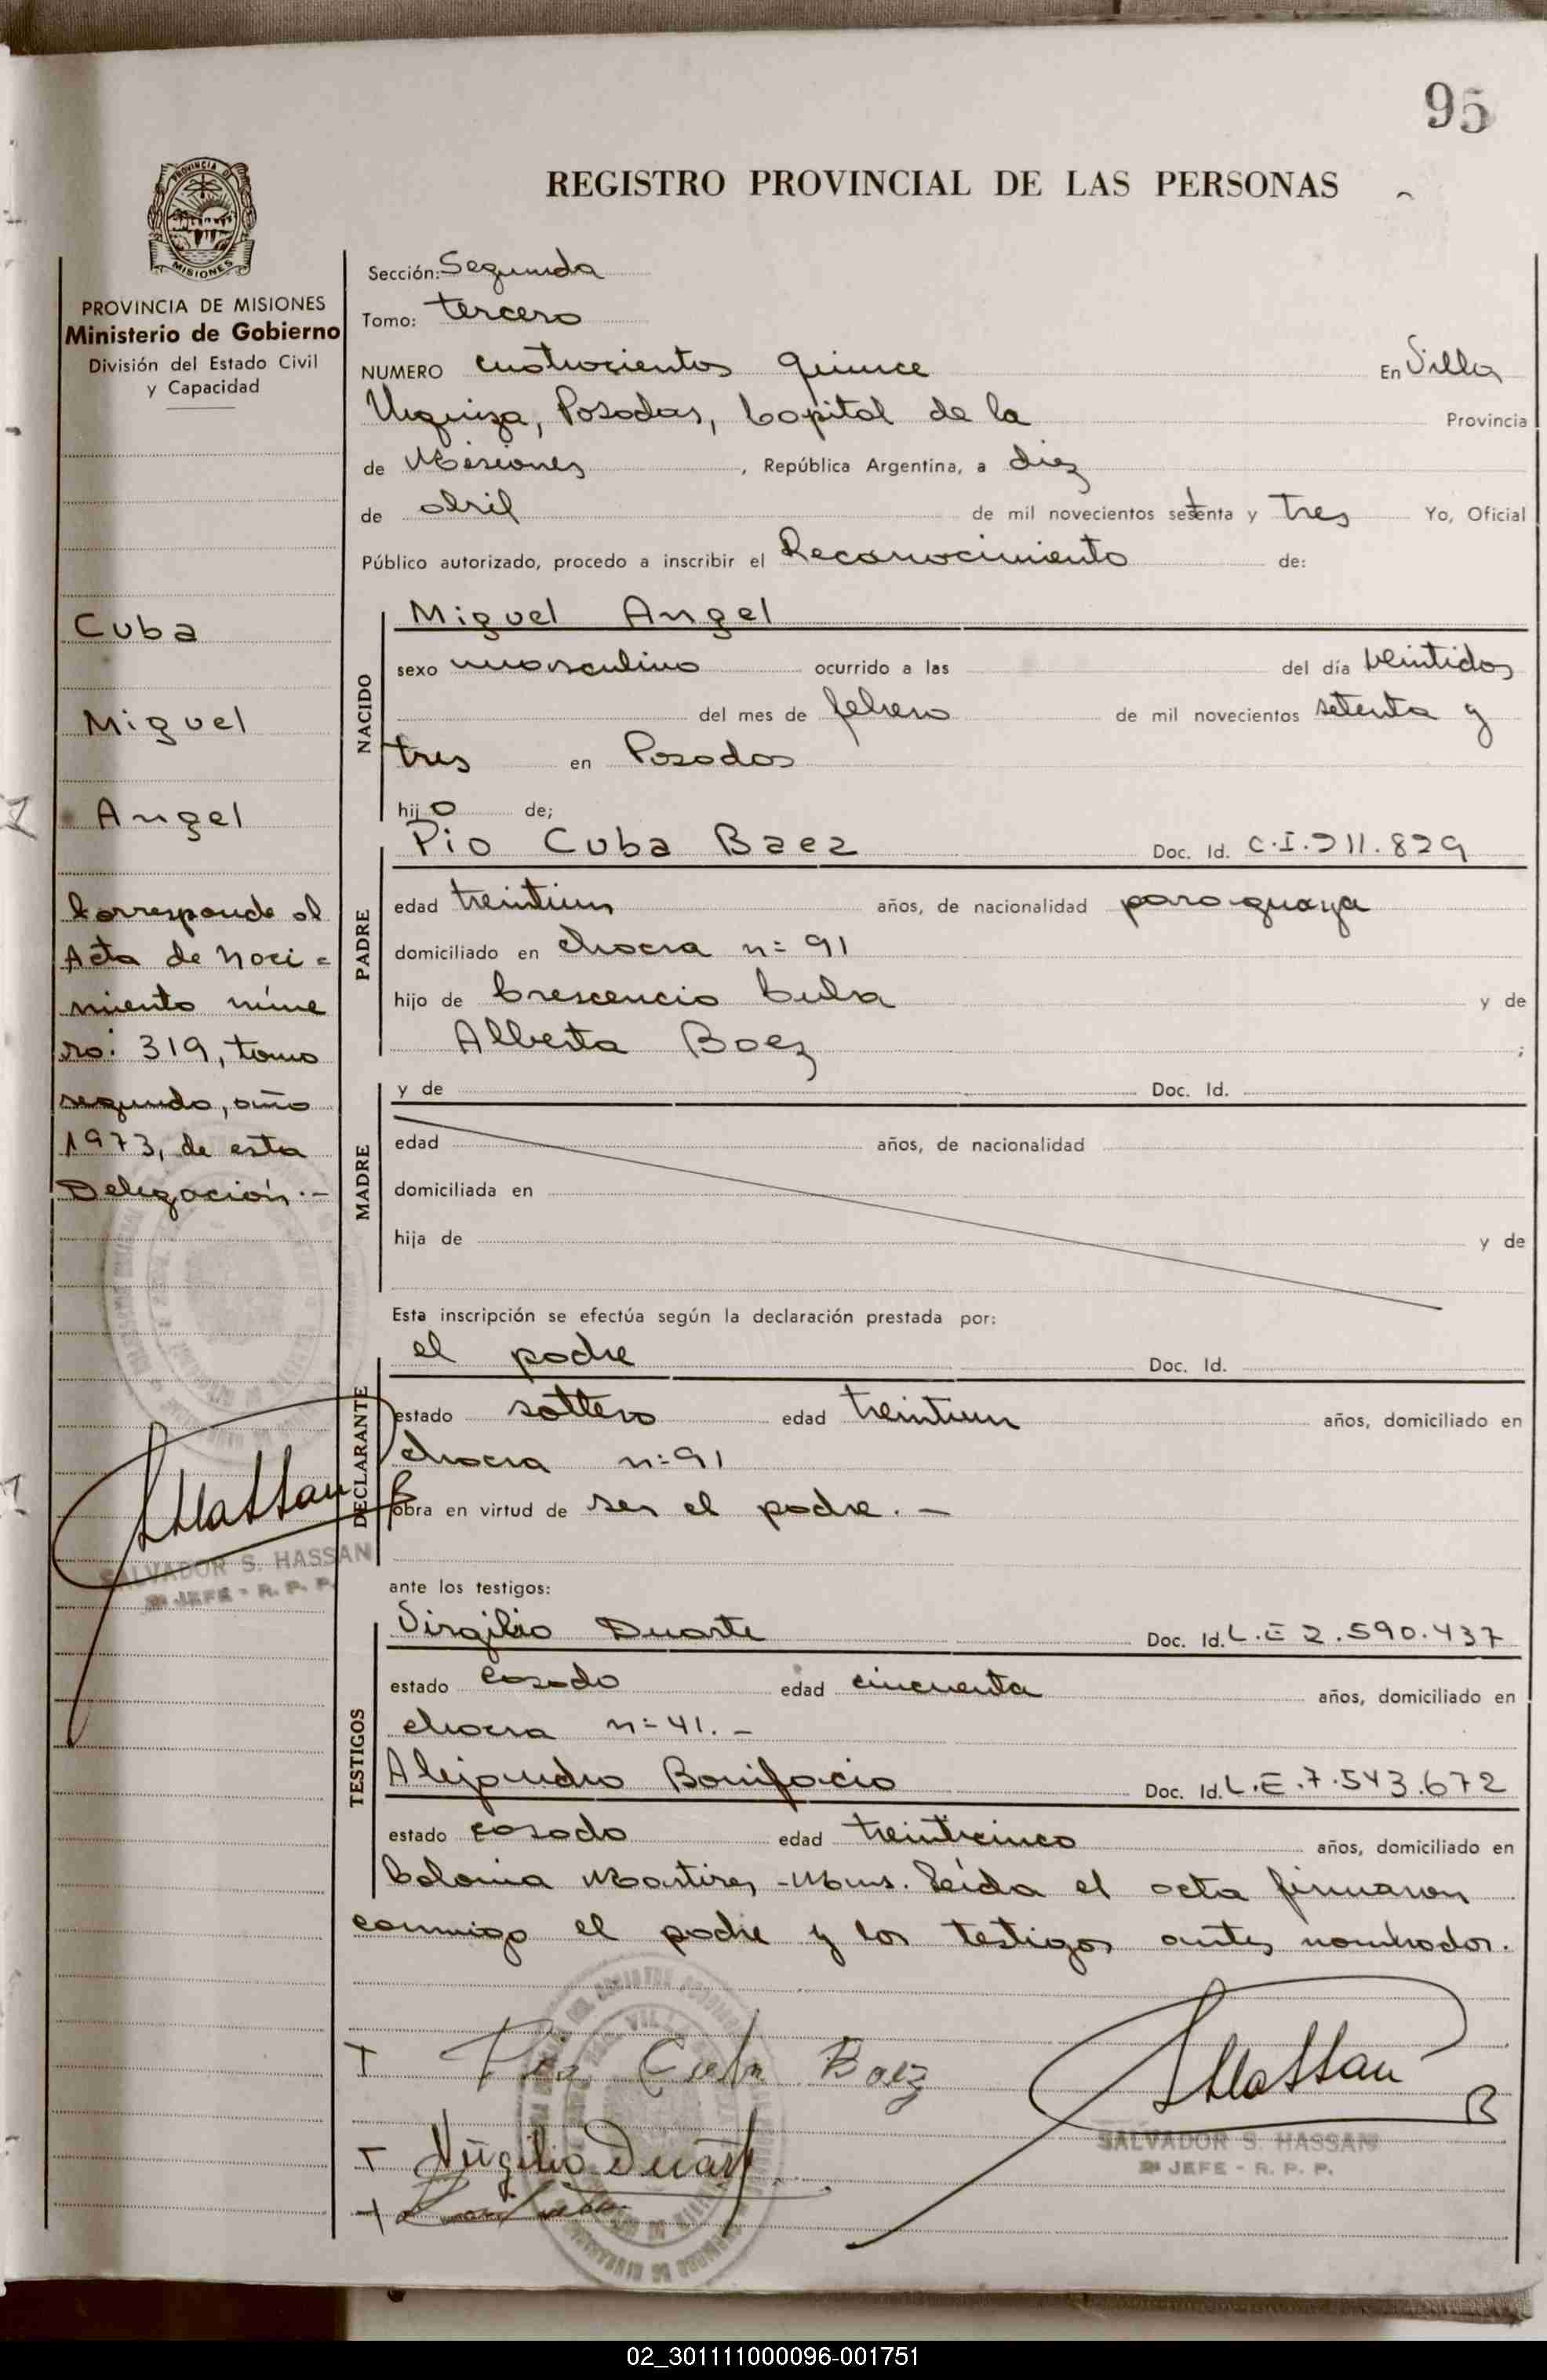 95
REGISTRO PROVINCIAL DE LAS PERSONAS
PROVINCIA DE
MISIONES
PROVINCIA DE MISIONES
Ministerio de Gobierno
División del Estado Civil
y Capacidad
Cuba
Miguel
Angel
Corresponde al
Acta de Naci=
miento núme
ro: 319, tomo
segundo, año
1973, de esta
Delegación.-
SALVADOR S. HASSAN
2º JEFE - R. P. P.
Sección: Segunda
Tomo: tercero
NUMERO cuatrocientos quince En Villa
Urquiza, Posadas, Capital de la Provincia
de Misiones, República Argentina, a diez
de abril de mil novecientos setenta y tres Yo, Oficial
Público autorizado, procedo a inscribir el Reconocimiento de:
NACIDO
Miguel Angel
sexo masculino ocurrido a las del día veintidos
del mes de febrero de mil novecientos setenta y
tres en Posadas
hijo de;
PADRE
Pio Cuba Baez Doc. Id. C.I. 211.829
edad treintiun años, de nacionalidad paraguaya
domiciliado en chacra n= 91
hijo de Crescencio Cuba y de
Alberta Baez ;
MADRE
y de Doc. Id.
edad años, de nacionalidad
domiciliada en
hija de y de
Esta inscripción se efectúa según la declaración prestada por:
DECLARANTE
el padre Doc. Id.
estado soltero edad treintiun años, domiciliado en
chacra n=91
obra en virtud de ser el padre.-
ante los testigos:
TESTIGOS
Virgilio Duarte Doc. Id. L.E 2.590.437
estado casado edad cincuenta años, domiciliado en
chacra n=41.-
Alejandro Bonifacio Doc. Id. L.E.7.543.672
estado casado edad treinticinco años, domiciliado en
Colonia Martires -Mnes. Leída el acta firmaron
conmigo el padre y los testigos antes nombrados.
Pio Cuba Baez
Virgilio Duarte
SALVADOR S. HASSAN
2º JEFE - R. P. P.
02_301111000096-001751